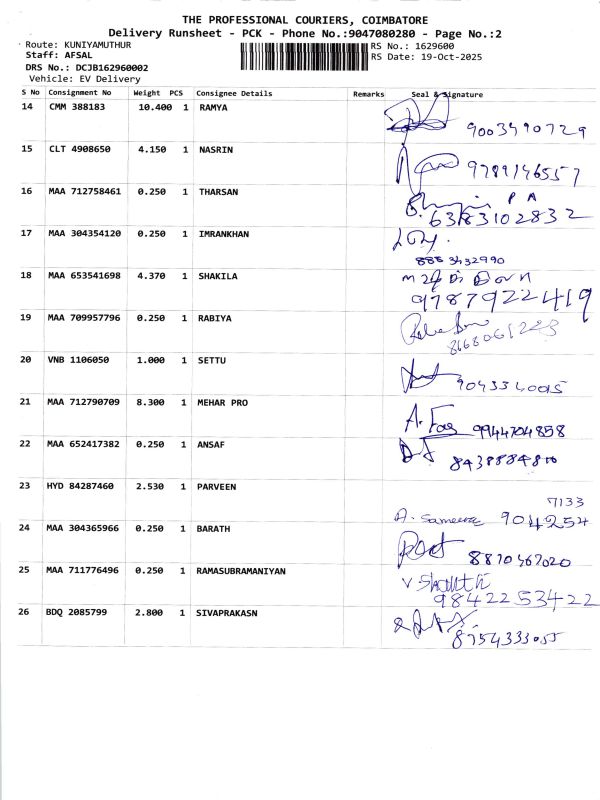 THE PROFESSIONAL COURIERS, COIMBATORE
Delivery Runsheet - PCK - Phone No.:9047080280 - Page No.:2
Route: KUNIYAMUTHUR RS No.: 1629600
Staff: AFSAL RS Date: 19-Oct-2025
DRS No.: DCJB162960002
Vehicle: EV Delivery
S No Consignment No Weight PCS Consignee Details Remarks Seal & Signature
14 CMM 388183 10.400 1 RAMYA
9003490729
15 CLT 4908650 4.150 1 NASRIN
9789146557
16 MAA 712758461 0.250 1 THARSAN P A
6383102832
17 MAA 304354120 0.250 1 IMRANKHAN
8883432990
18 MAA 653541698 4.370 1 SHAKILA
9787922419
19 MAA 709957796 0.250 1 RABIYA
20 VNB 1106050 1.000 1 SETTU
21 MAA 712790709 8.300 1 MEHAR PRO
9944704858
22 MAA 652417382 0.250 1 ANSAF
23 HYD 84287460 2.530 1 PARVEEN
7133
A. Sameera 904254
24 MAA 304365966 0.250 1 BARATH
8870467020
25 MAA 711776496 0.250 1 RAMASUBRAMANIYAN
9842253422
26 BDQ 2085799 2.800 1 SIVAPRAKASN
8754333055